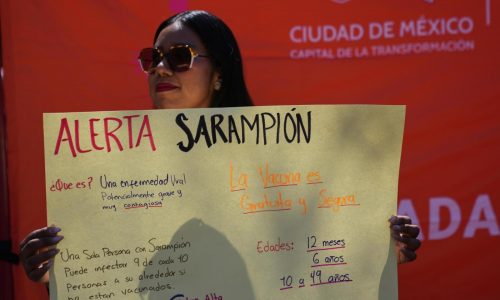 CIUDAD DE MÉXICO
CAPITAL DE LA TRANSFORMACIÓN
ALERTA SARAMPIÓN
¿Que es? Una enfermedad Viral
Potencialmente grave y
muy contagiosa
La Vacuna es
Gratuita y Segura
Una Sola Persona con Sarampión
Puede infectar 9 de cada 10
Personas a su alrededor si
no estan vacunados.
Edades: 12 meses
6 años
10 a 49 años
Alta
ADA